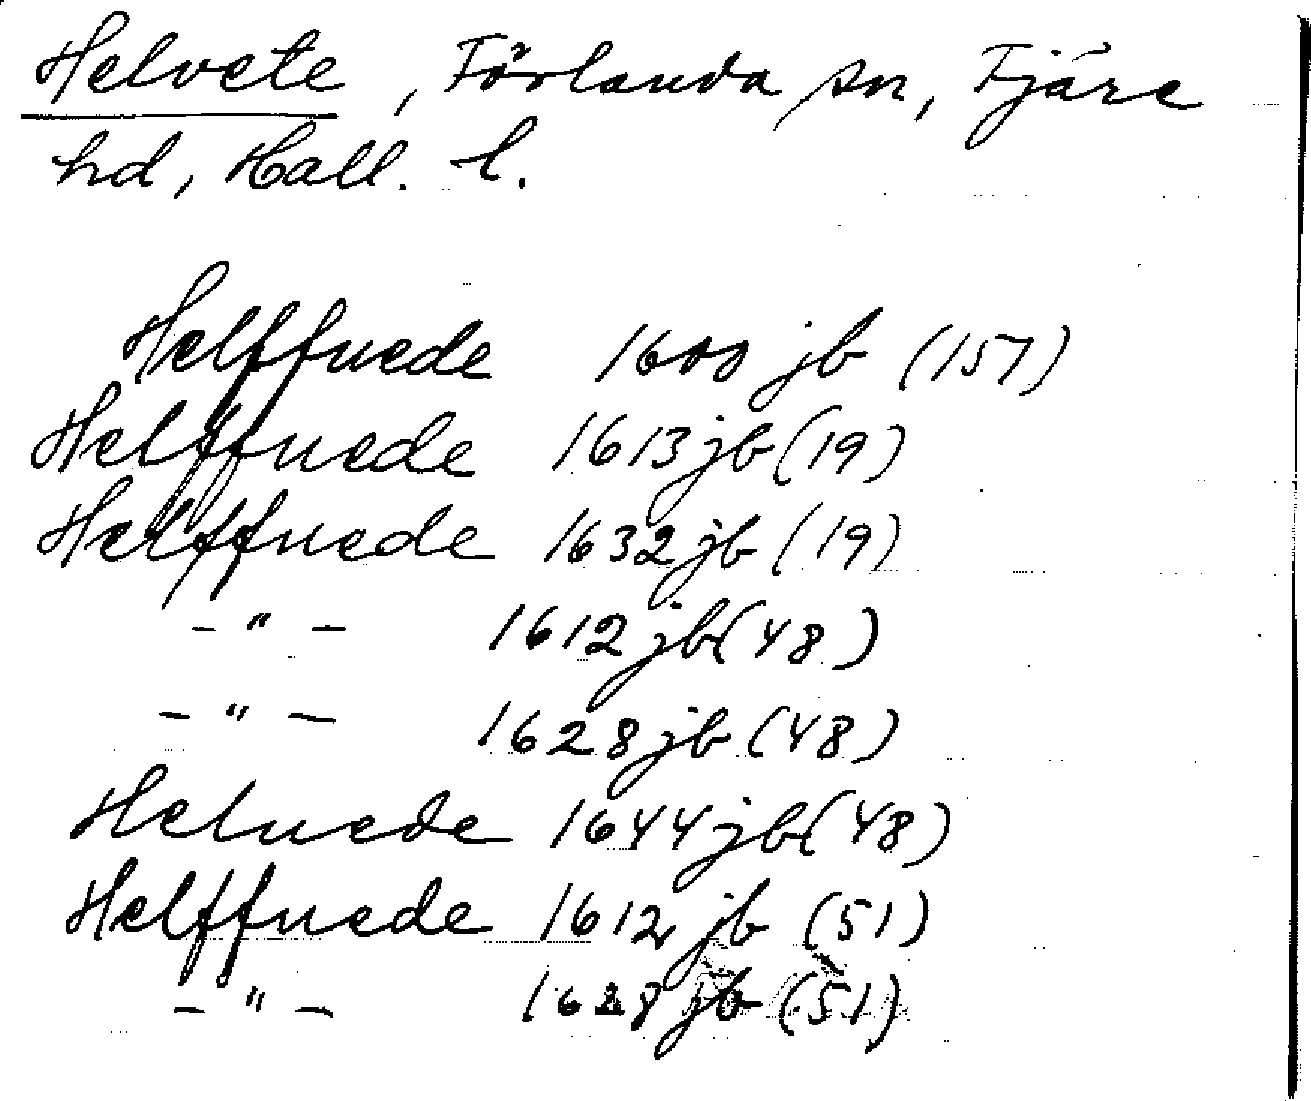 Helvete, Förlanda sn, Fjäre
hd, Hall. l.
Helffuede 1600 jb (157)
Helffuede 1613 jb (19)
Helffuede 1632 jb (19)
– " – 1612 jb (48)
– " – 1628 jb (48)
Heluede 1644 jb (48)
Helffuede 1612 jb (51)
– " – 1628 jb (51)